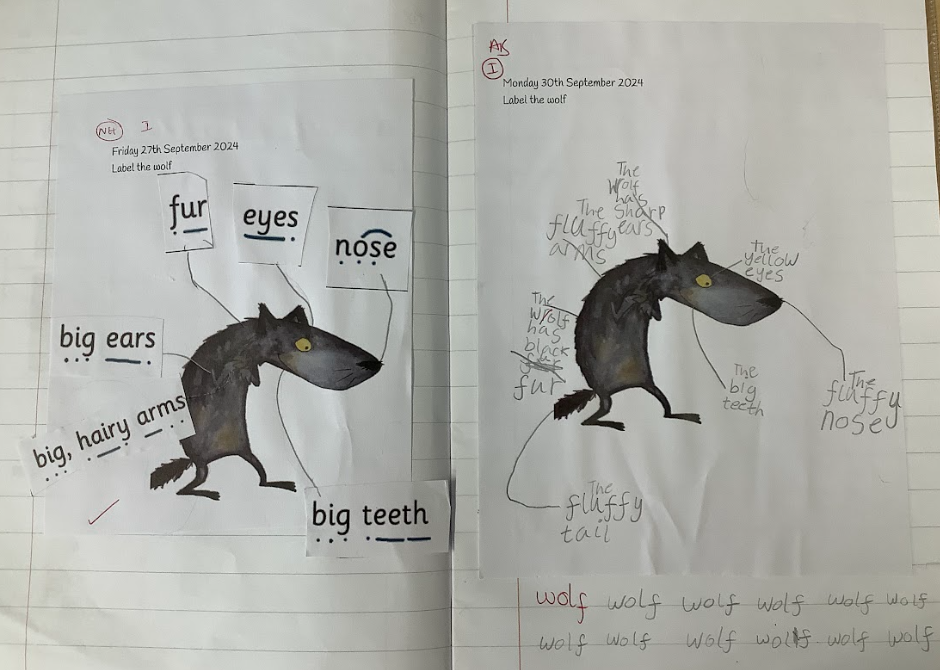 Nbt I
Friday 27th September 2024
Label the wolf
fur
eyes
nose
big ears
big, hairy arms
big teeth
AB
I
Monday 30th September 2024
Label the wolf
The
Wolf
has
sharp
ears
The
fluffy
arms
The
yellow
eyes
The
Wolf
has
black
fur
The
big
teeth
The
fluffy
nose
The
fluffy
tail
wolf wolf wolf wolf wolf wolf
wolf wolf wolf wolf wolf wolf